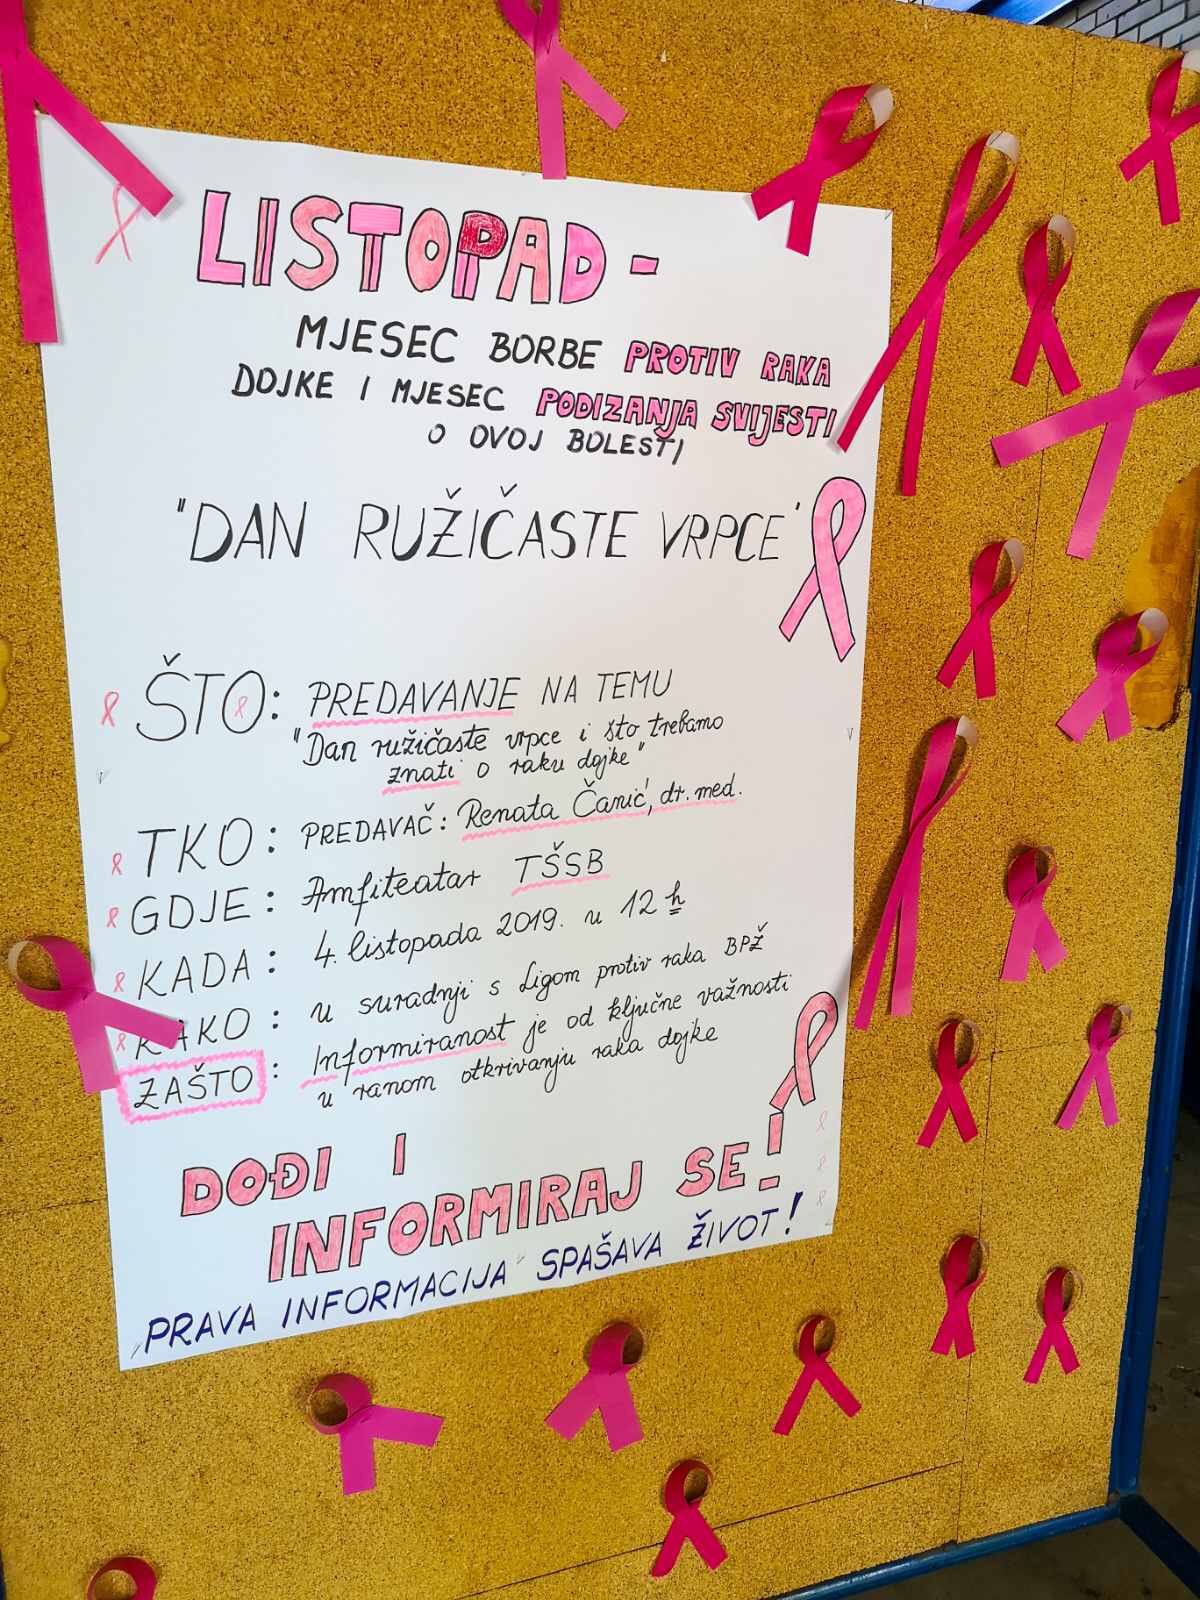 LISTOPAD -
MJESEC BORBE PROTIV RAKA
DOJKE I MJESEC PODIZANJA SVIJESTI
O OVOJ BOLESTI
"DAN RUŽIČASTE VRPCE"
ŠTO: PREDAVANJE NA TEMU
"Dan ružičaste vrpce i što trebamo
znati o raku dojke"
TKO: PREDAVAČ: Renata Čanić, dr. med.
GDJE: Amfiteatar TŠSB
KADA: 4. listopada 2019. u 12 h
KAKO: u suradnji s Ligom protiv raka BPŽ
ZAŠTO: Informiranost je od ključne važnosti
u ranom otkrivanju raka dojke
DOĐI I
INFORMIRAJ SE!
PRAVA INFORMACIJA SPAŠAVA ŽIVOT!